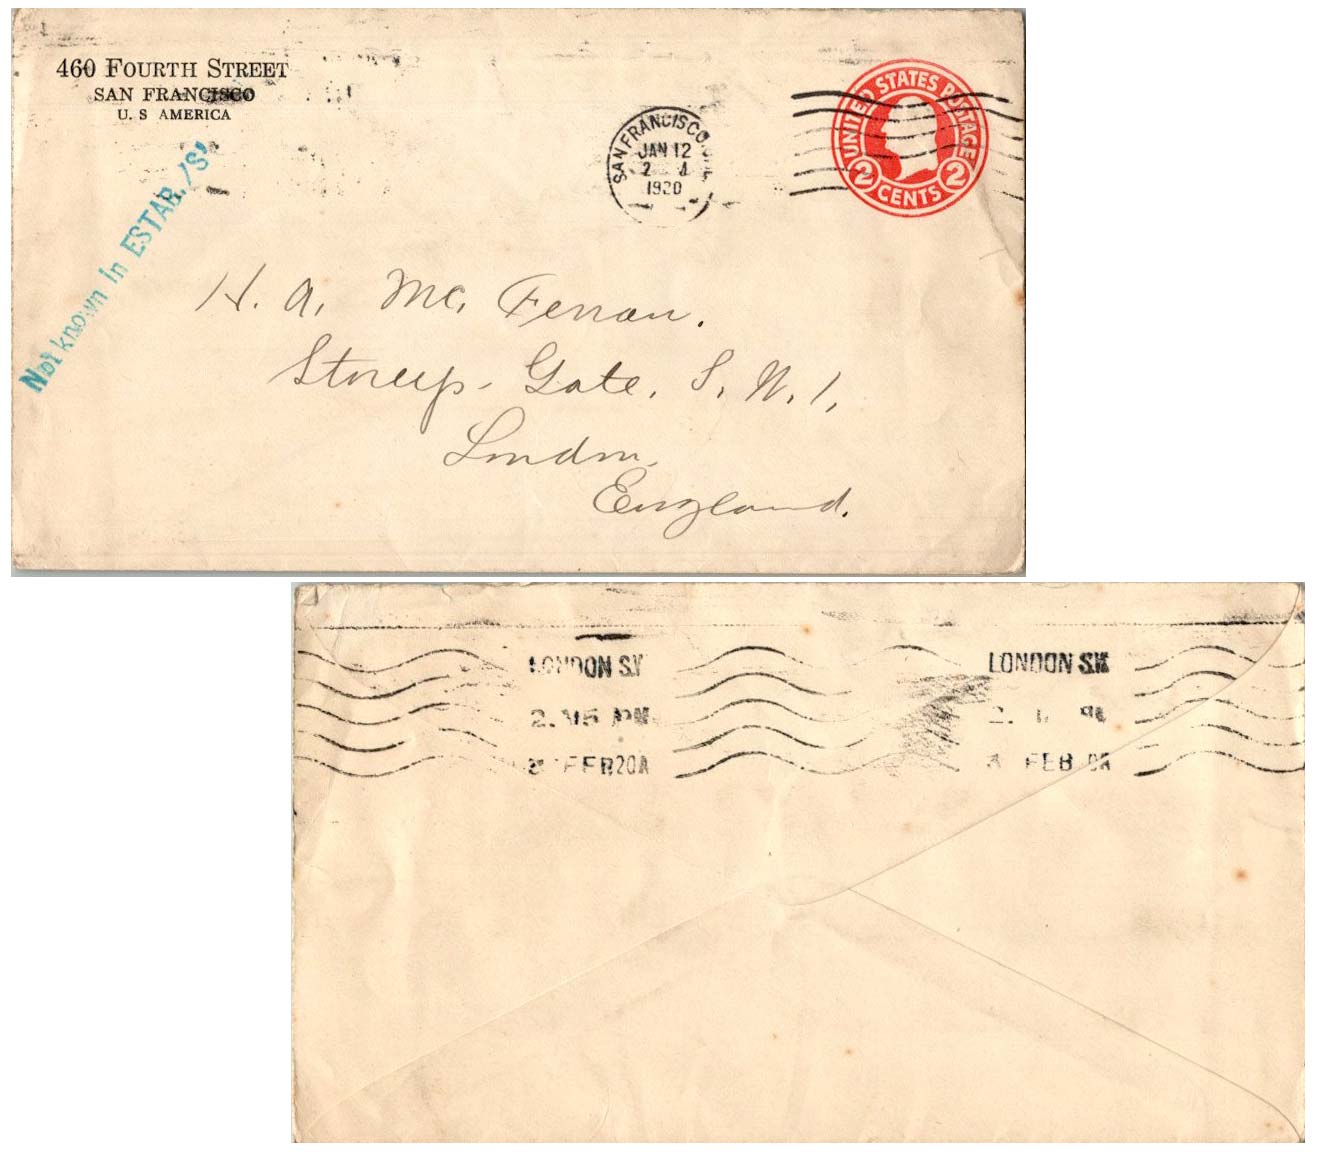 460 FOURTH STREET
SAN FRANCISCO
U. S AMERICA
Not known in ESTAB. /S'
SAN FRANCISCO
JAN 12
1920
UNITED STATES POSTAGE
2 CENTS 2
H. A. Mc.
Gate, S. W. 1,
London,
England.
LONDON S.W
LONDON S.W
2. 15 PM
FEB 20A
FEB